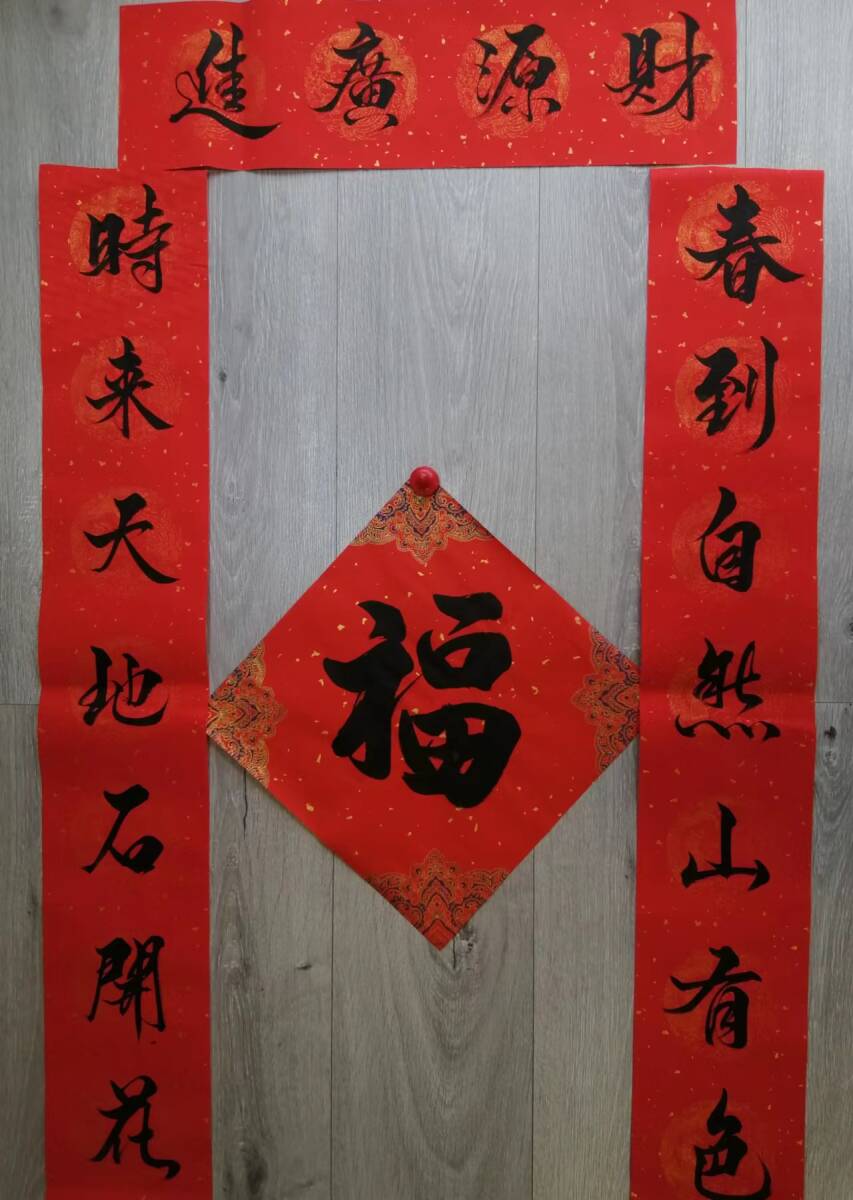 財源廣進
春到自然山有色
時来天地石開花
福